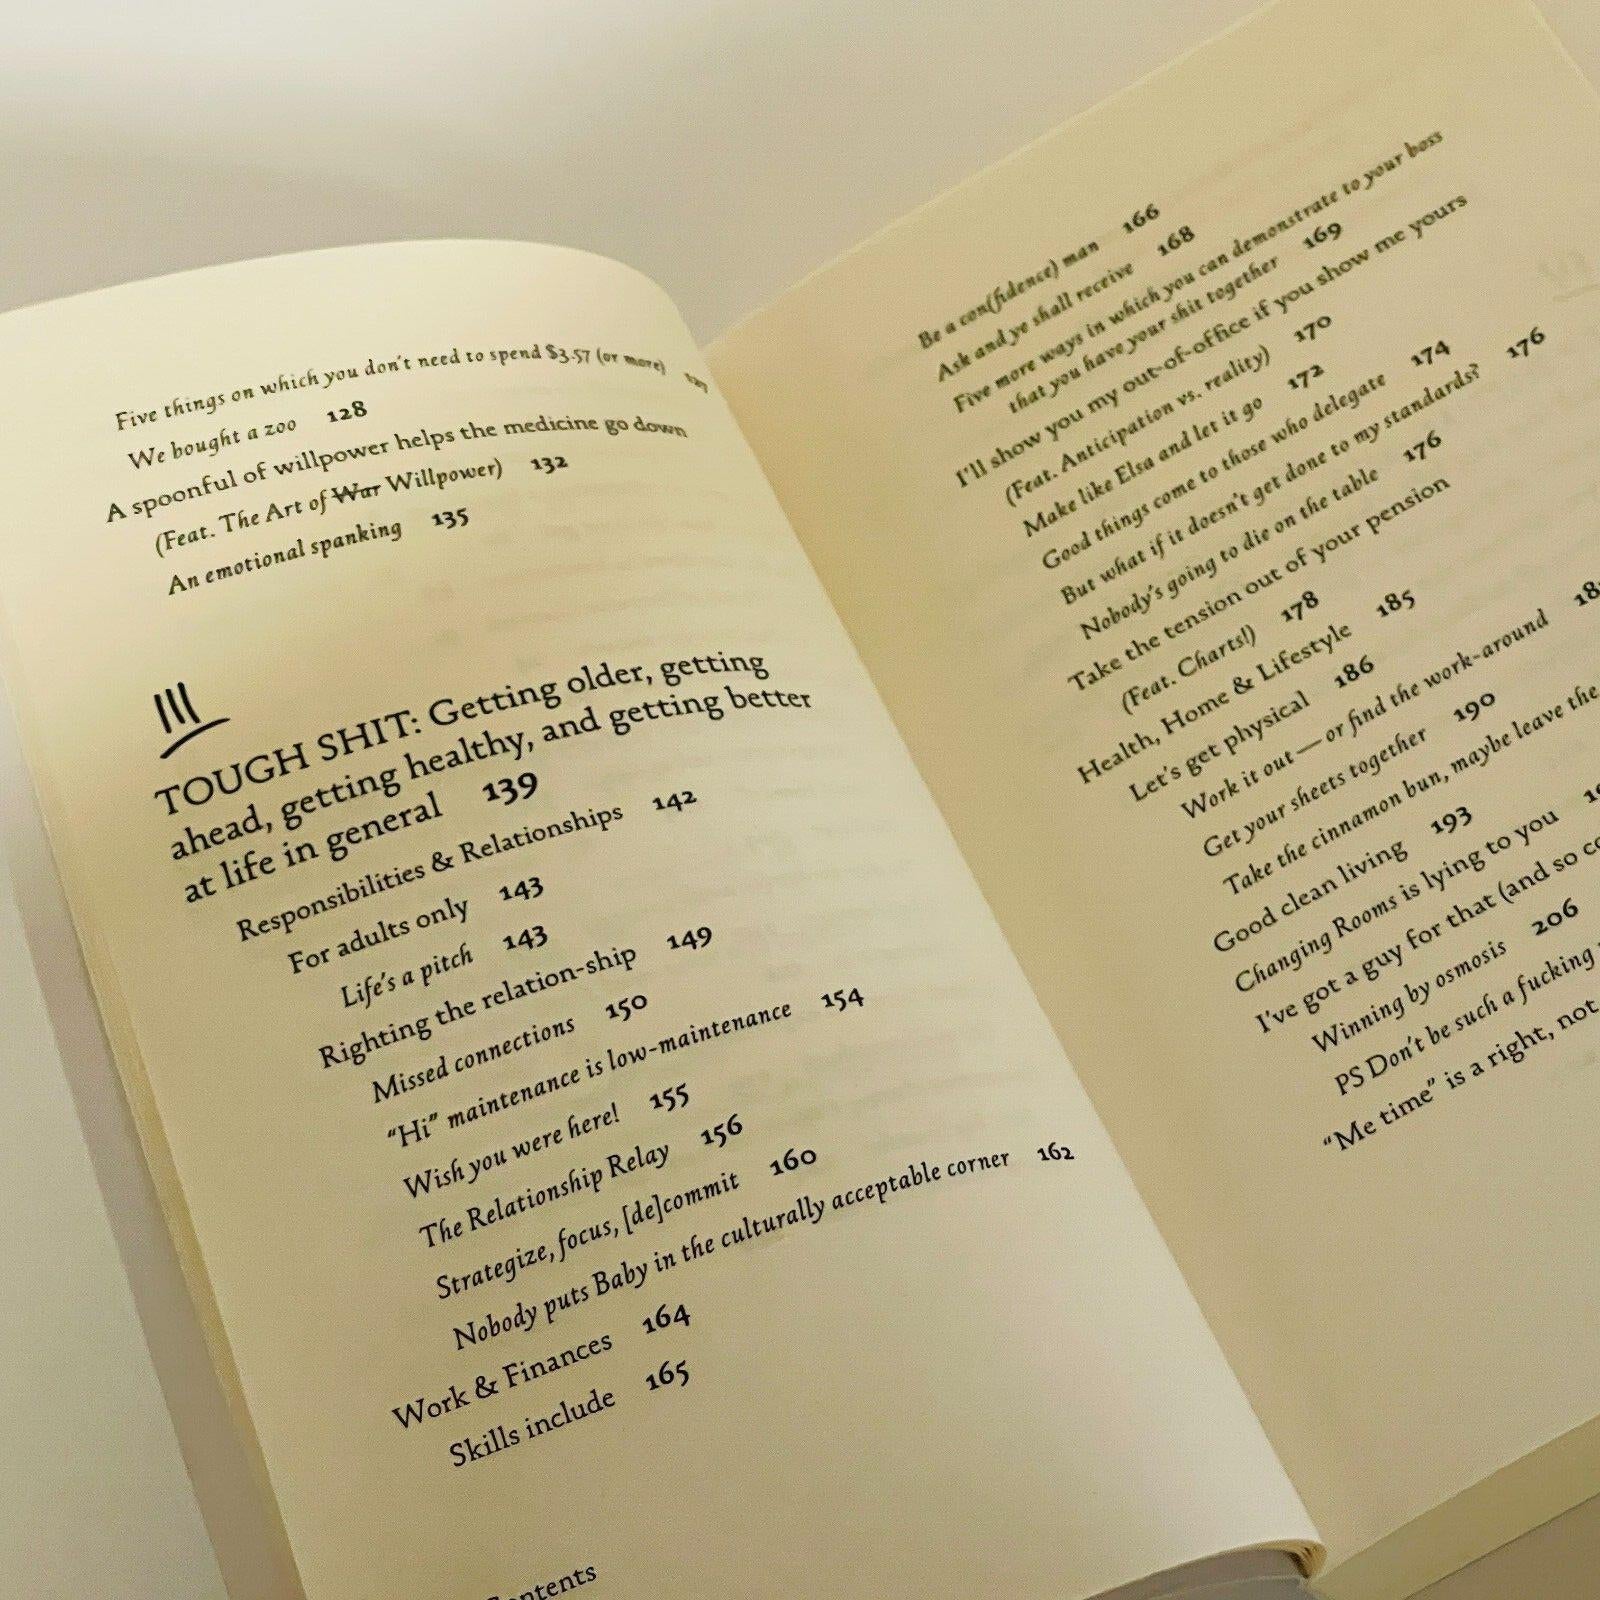 Five things on which you don't need to spend $3.57 (or more) 127
We bought a zoo 128
A spoonful of willpower helps the medicine go down
(Feat. The Art of War Willpower) 132
An emotional spanking 135
III
TOUGH SHIT: Getting older, getting
ahead, getting healthy, and getting better
at life in general 139
Responsibilities & Relationships 142
For adults only 143
Life's a pitch 143
Righting the relation-ship 149
Missed connections 150
“Hi” maintenance is low-maintenance 154
Wish you were here! 155
The Relationship Relay 156
Strategize, focus, [de]commit 160
Nobody puts Baby in the culturally acceptable corner 162
Work & Finances 164
Skills include 165
Contents
Be a con(fidence) man 166
Ask and ye shall receive 168
Five more ways in which you can demonstrate to your boss
that you have your shit together 169
I'll show you my out-of-office if you show me yours
(Feat. Anticipation vs. reality) 170
Make like Elsa and let it go 172
Good things come to those who delegate 174
But what if it doesn't get done to my standards? 176
Nobody's going to die on the table 176
Take the tension out of your pension
(Feat. Charts!) 178
Health, Home & Lifestyle 185
Let's get physical 186
Work it out — or find the work-around
Get your sheets together 190
Take the cinnamon bun, maybe leave the
Good clean living 193
Changing Rooms is lying to you
I've got a guy for that (and so
Winning by osmosis 206
PS Don't be such a fucking
“Me time” is a right, not